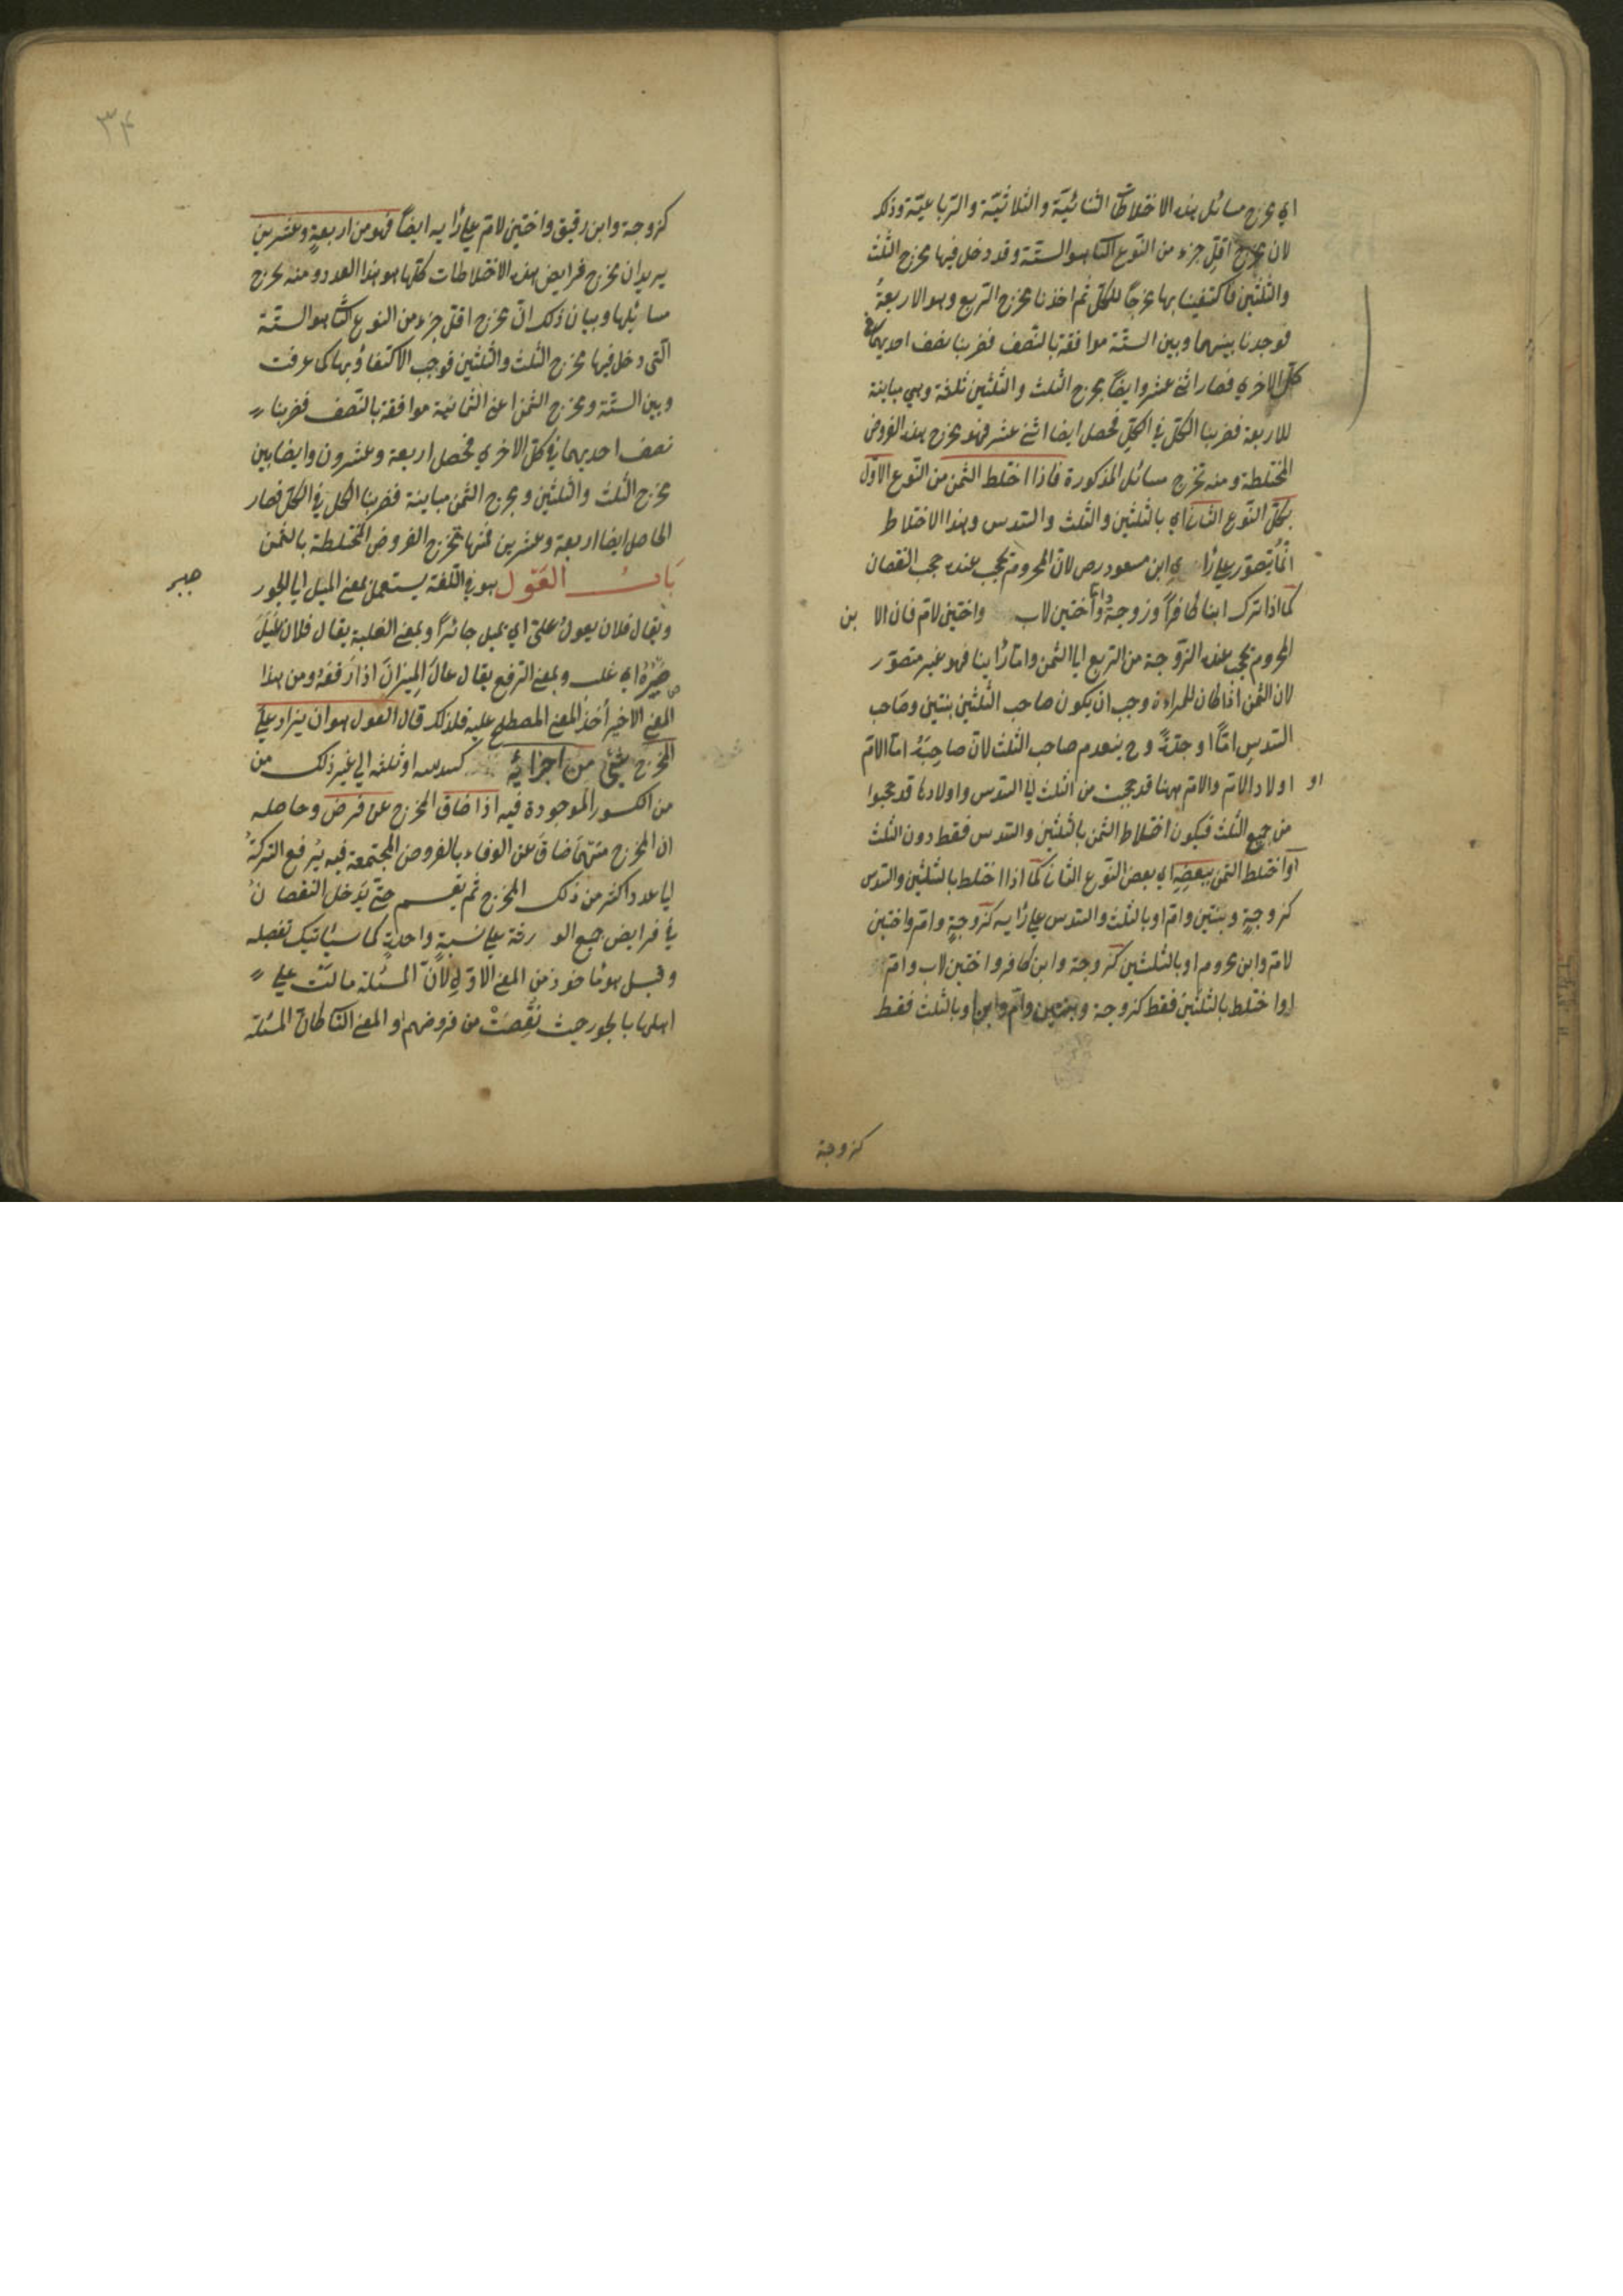 اي مخرج مسائل هذه الاختلاطات الثنائية والثلاثية والرباعية وذلك
لان مخرج اقل جزء من النوع الثاني هو الستة وقد دخل فيها مخرج الثلث
والثلثين فاكتفينا بها مخرجا للكل ثم اخذنا مخرج الربع وهو الاربعة
فوجدنا بينهما وبين الستة موافقة بالنصف فضربنا نصف احديهما في
كل الاخري فصار اثني عشر وايضا مخرج الثلث والثلثين ثلثة وهي مباينة
للاربعة فضربنا الكل في الكل فحصل ايضا اثني عشر فهو مخرج هذه الفروض
المختلطة ومنه تخرج مسائل المذكورة فاذا اختلط الثمن من النوع الاول
بكل النوع الثاني اي بالثلثين والثلث والسدس وهذا الاختلاط
انما يتصور علي رأي ابن مسعود رض لان المحروم يحجب عنده حجب النقصان
كما اذا ترك ابنا كافرا وزوجة واما واختين لاب واختين لام فان الا بن
المحروم يحجب عنده الزوجة من الربع الي الثمن واما رأينا فهو غير متصور
لان الثمن اذا كان للمراءة وجب ان يكون صاحب الثلثين بنتين وصاحب
السدس اما او جدة وح ينعدم صاحب الثلث لان صاحبه اما الام
او اولاد الام والام ههنا قد حجبت من الثلث الي السدس واولادها قد حجبوا
من جميع الثلث فيكون اختلاط الثمن بالثلثين والسدس فقط دون الثلث
او اختلط الثمن ببعضه اي بعض النوع الثاني كما اذا اختلط بالثلثين والسدس
كزوجة وبنتين وام او بالثلث والسدس علي رأيه كزوجة وام واختين
لام وابن محروم او بالثلثين كزوجة وابن كافر واختين لاب وام
او اختلط بالثلثين فقط كزوجة وبنتين وام وابن او بالثلث فقط
كزوجة
٣٤
كزوجة وابن رقيق واختين لام علي رأيه ايضا فهو من اربعة وعشرين
يريد ان مخرج فرايض هذه الاختلاطات كلها هو هذا العدد ومنه تخرج
مسائلها وبيان ذلك ان مخرج اقل جزء من النوع الثاني هو الستة
التي دخل فيها مخرج الثلث والثلثين فوجب الاكتفاؤ بها كما عرفت
وبين الستة ومخرج الثمن اعني الثمانية موافقة بالنصف فضربنا
نصف احديهما في كل الاخري فحصل اربعة وعشرون وايضا بين
مخرج الثلث والثلثين ومخرج الثمن مباينة فضربنا الكل في الكل فصار
الحاصل ايضا اربعة وعشرين فمنها تخرج الفروض المختلطة بالثمن
باب العول هو في اللغة يستعمل بمعني الميل الي الجور
ويقال فلان يعول علي اي يميل جائرا وبمعني الغلبة يقال فلان عيل
صبره اي غلب وبمعني الترفع يقال عال الميزان اذا رفعه ومن هذا
صبر
المعني الاخير أخذ المعني المصطلح عليه فلذلك قال العول هو ان يزاد علي
المخرج شئ من اجزائه كسدسه او ثلثه الي غير ذلك من
من الكسور الموجودة فيه اذا ضاق المخرج عن فرض وحاصله
ان المخرج متي ضاق عن الوفاء بالفروض المجتمعة فيه يرفع التركة
الي عدد اكثر من ذلك المخرج ثم يقسم حتي يدخل النقصان
في فرايض جميع الورثة علي نسبة واحدة كما سيأتيك تفصله
وقيل هو مأخوذ من المعني الاول لان المسئلة مالت علي
اهلها بالجور حيث نقصت من فروضهم او المعني الثاني كان المسئلة